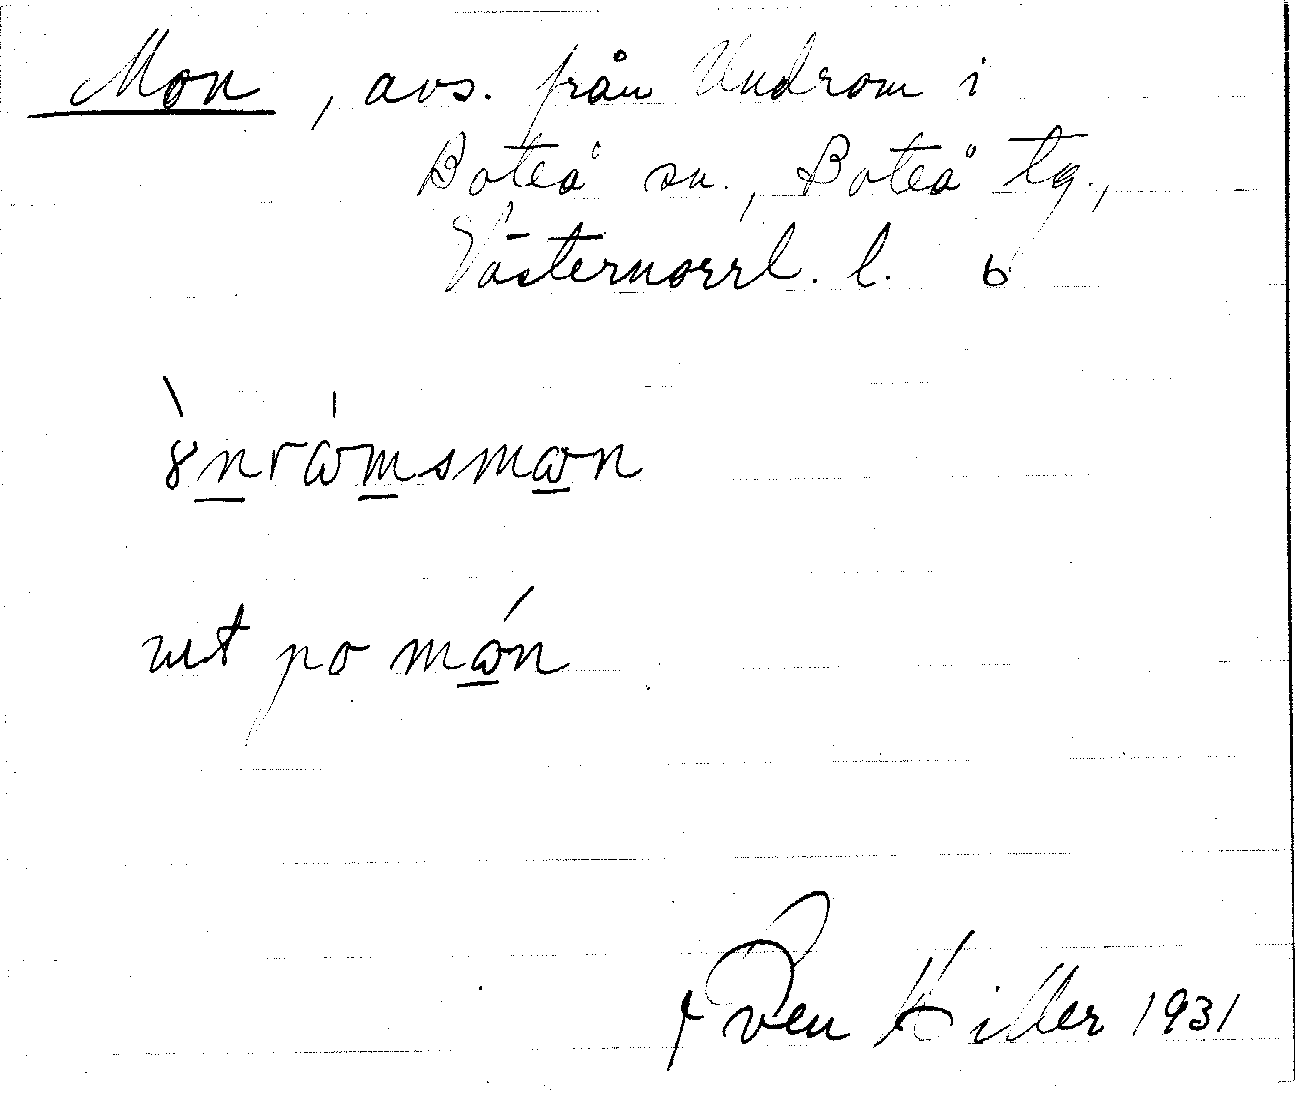 Mon, avs. från Undrom i
Boteå sn., Boteå tg.,
Västernorrl. l. b
ȣ̀nrɷ̍msmɷn
ut po mɷ́n
Sven Hiller 1931